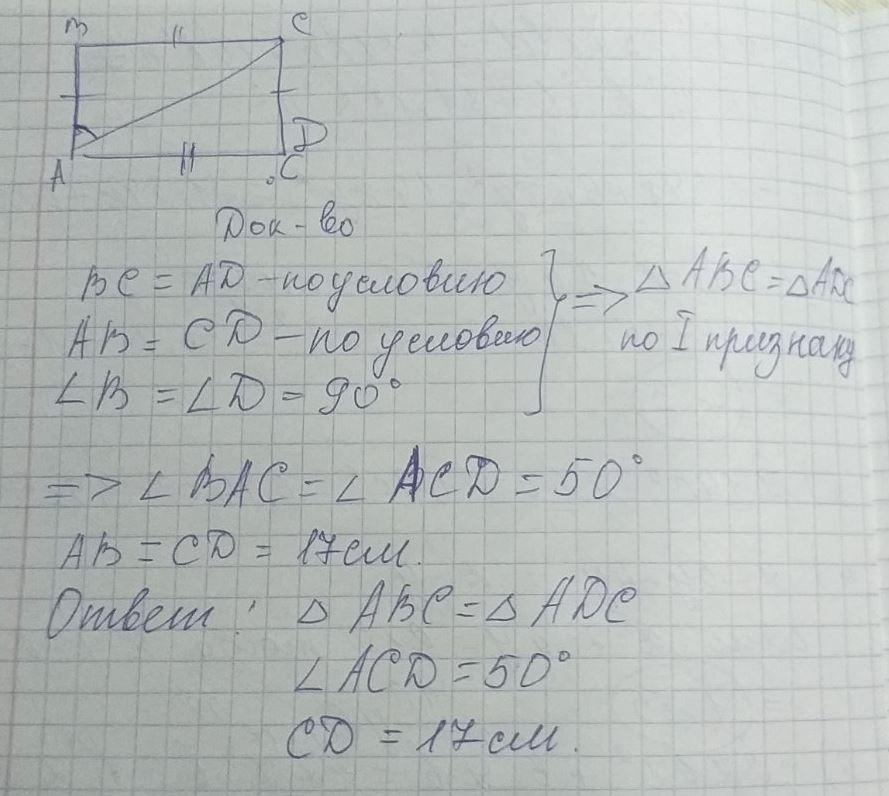 B C
A D
C
Док-во
BC = AD - по условию
AB = CD - по условию
∠B = ∠D = 90°
=> △ ABC = △ ADC
по I признаку
=> ∠ BAC = ∠ ACD = 50°
AB = CD = 17 см.
Ответ: △ ABC = △ ADC
∠ ACD = 50°
CD = 17 см.